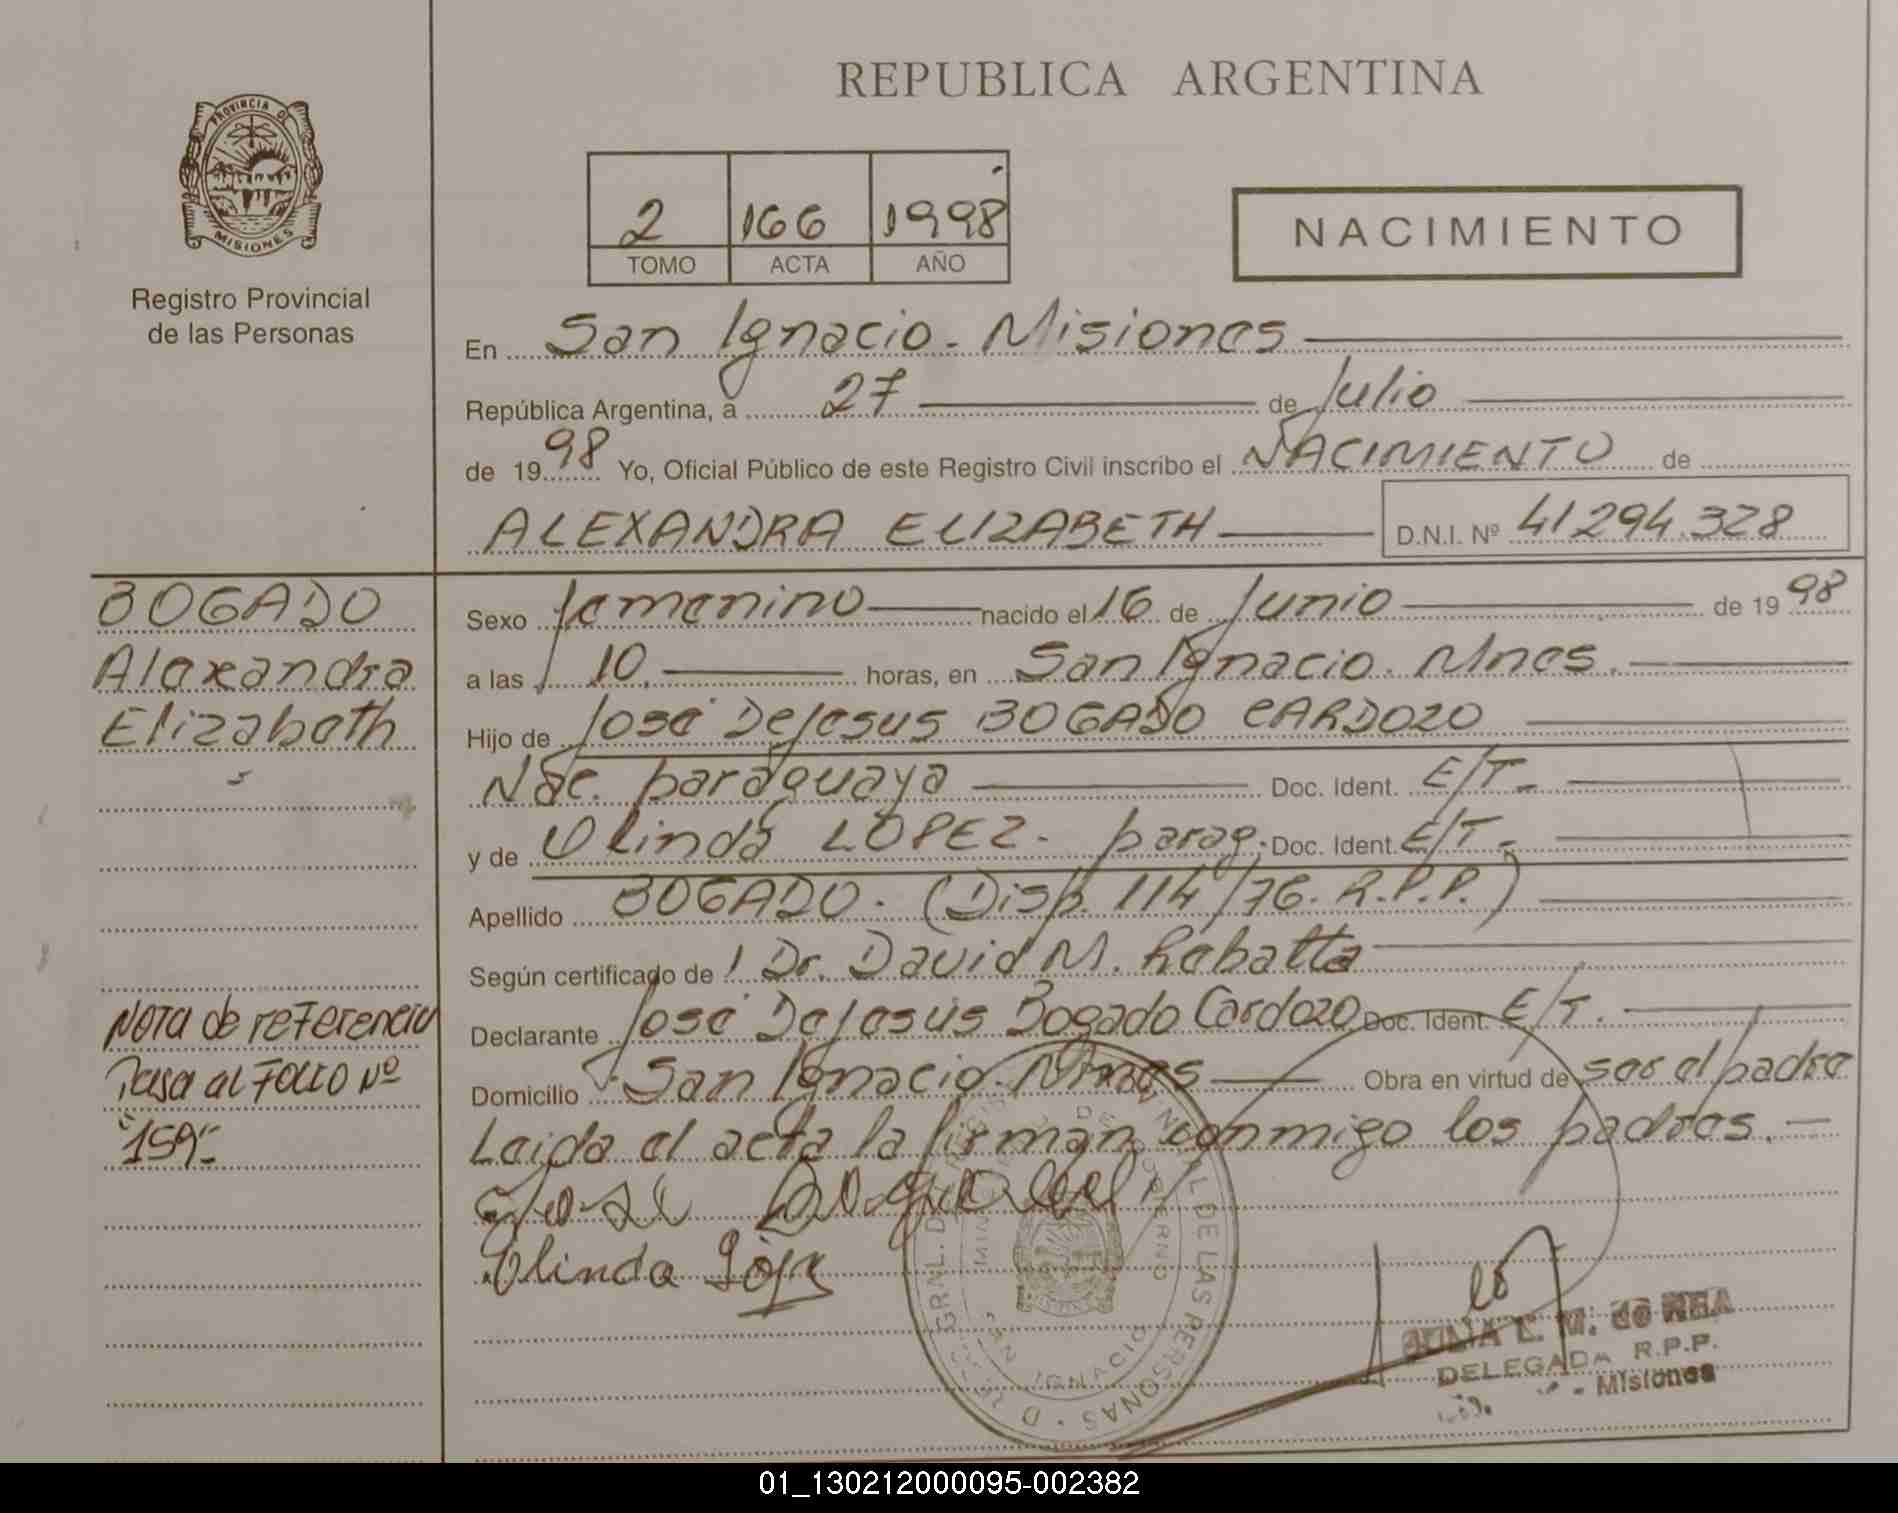 REPUBLICA ARGENTINA
PROVINCIA DE
MISIONES
Registro Provincial
de las Personas
2 166 1998
TOMO ACTA AÑO
NACIMIENTO
En San Ignacio - Misiones
República Argentina, a 27 de Julio
de 1998 Yo, Oficial Público de este Registro Civil inscribo el NACIMIENTO de
ALEXANDRA ELIZABETH D.N.I. Nº 41294.328
BOGADO
Alexandra
Elizabeth
Nota de referencia
Pasa al Folio Nº
"159"
Sexo femenino nacido el 16 de Junio de 1998
a las 10. horas, en San Ignacio. Mnes.
Hijo de José DeJesus BOGADO CARDOZO
Nac. paraguaya Doc. Ident. E/T.
y de Olinda LOPEZ - parag. Doc. Ident. E/T.
Apellido BOGADO. (Disp. 114/76. R.P.P.)
Según certificado de Dr. David M. Rebatta
Declarante José DeJesús Bogado Cardozo Doc. Ident. E/T.
Domicilio San Ignacio. Mnes Obra en virtud de ser el padre
Leida el acta la firman conmigo los padres.
José
Olinda
SAN IGNACIO
DE LAS PERSONAS
DELEGADA R.P.P.
- Misiones
01_130212000095-002382